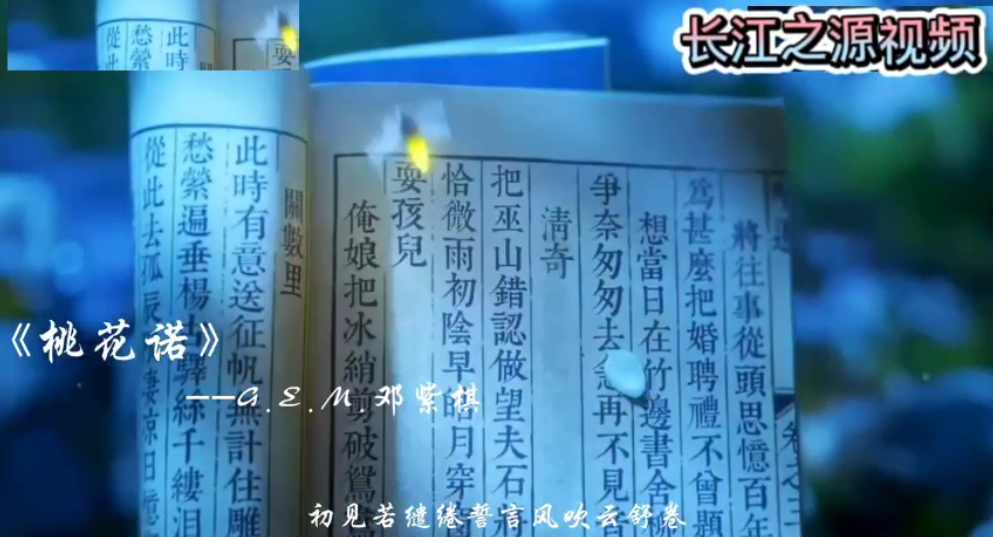 长江之源视频
耍
此時
愁縈
從此
卷之
將往事從頭思憶百年
爲甚麽把婚聘禮不曾題
想當日在竹邊書舍
爭奈匆匆去急再不見
清奇
把巫山錯認做望夫石將
恰微雨初陰早皓月穿窗
耍孩兒
俺娘把冰綃剪破鴛
關數里
此時有意送征帆無計住雕
愁縈遍垂楊驛絲千縷淚
從此去孤辰凄凉日憶
《桃花诺》
——G.E.M.邓紫棋
初见若缱绻誓言风吹云舒卷